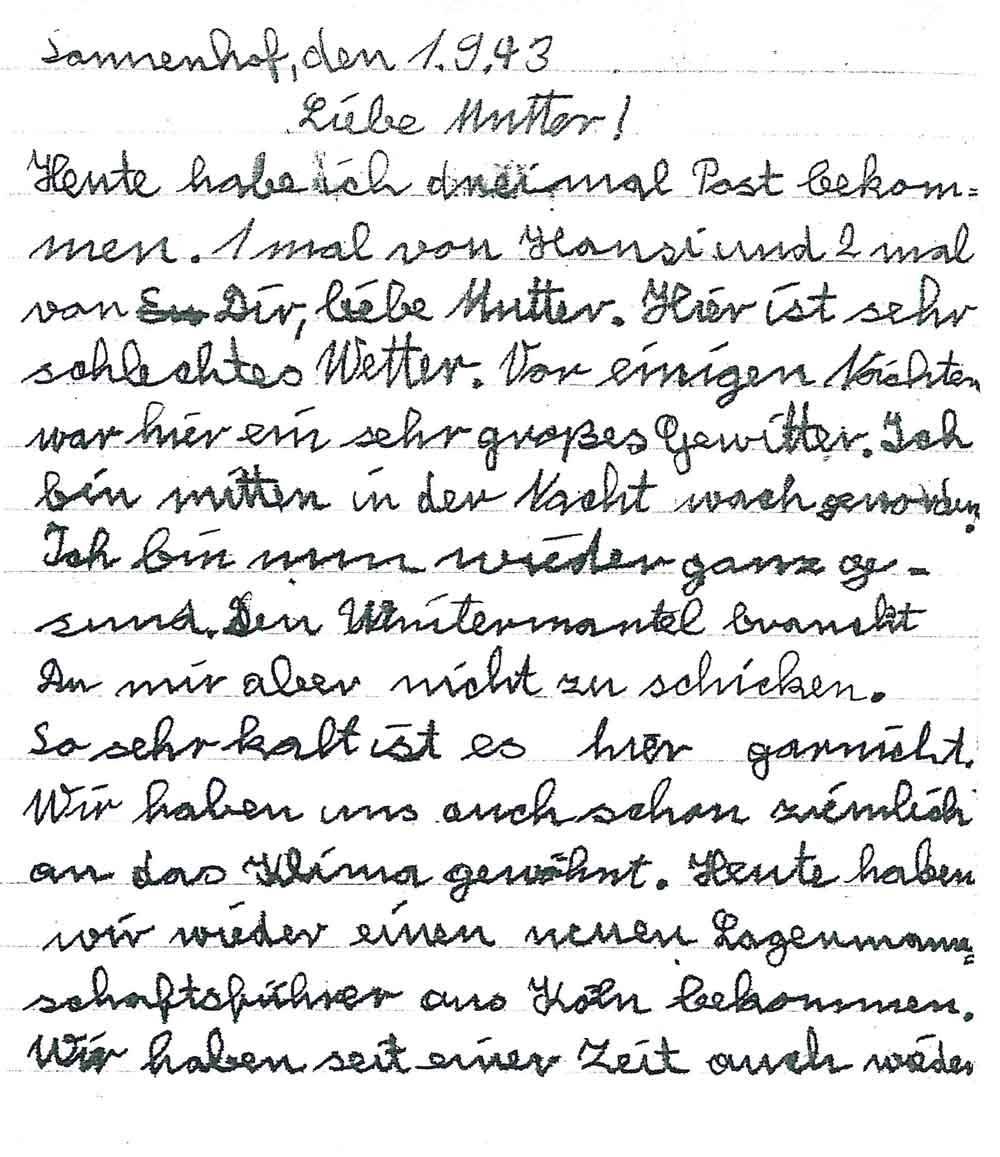 Sonnenhof, den 1.9.43
Liebe Mutter!
Heute habe ich dreimal Post bekom=
men. 1 mal von Hansi und 2 mal
von Dir, liebe Mutter. Hier ist sehr
schlechtes Wetter. Vor einigen Nächten
war hier ein sehr großes Gewitter. Ich
bin mitten in der Nacht wach geworden.
Ich bin nun wieder ganz ge-
sund. Den Wintermantel brauchst
Du mir aber nicht zu schicken.
So sehr kalt ist es hier garnicht.
Wir haben uns auch schon ziemlich
an das Klima gewöhnt. Heute haben
wir wieder einen neuen Lagermann=
schaftsführer aus Köln bekommen.
Wir haben seit einer Zeit auch wieder